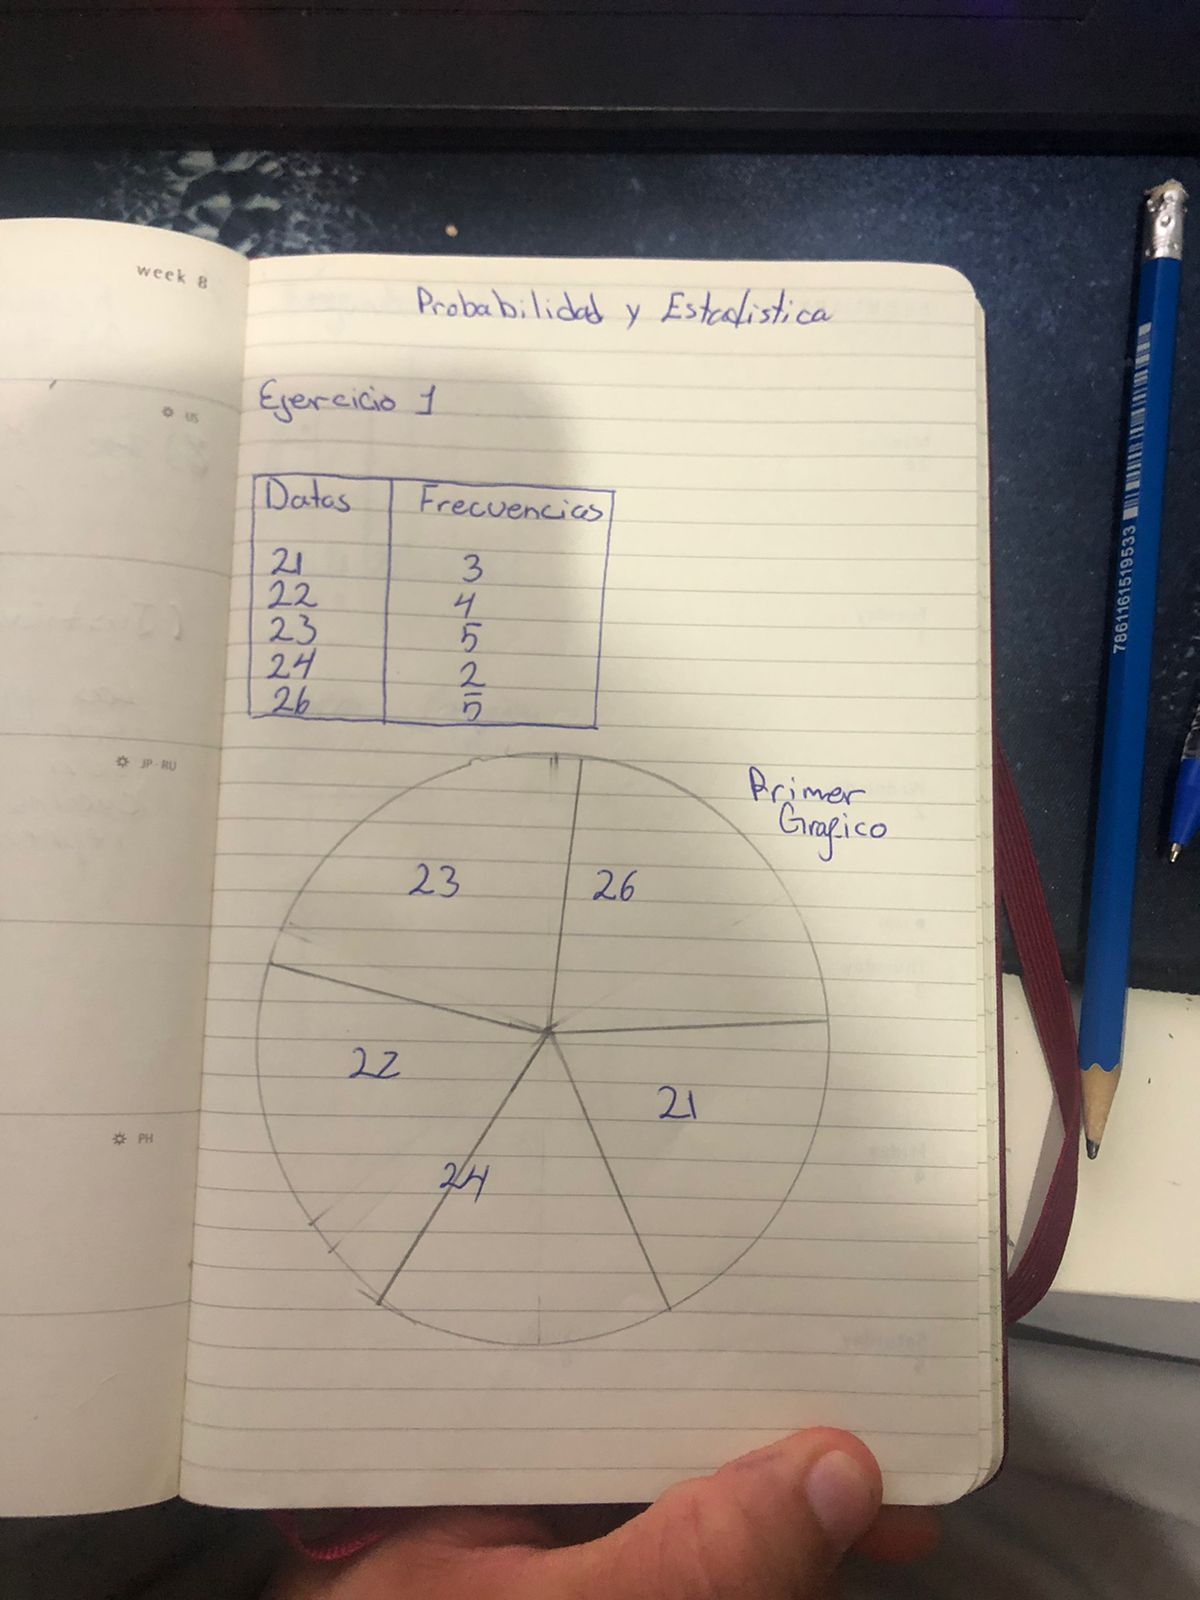 week 8
US
JP·RU
PH
Probabilidad y Estadistica
Ejercicio 1
Datos Frecuencias
21 3
22 4
23 5
24 2
26 5
Primer
Grafico
23
26
22
21
24
7861161519533